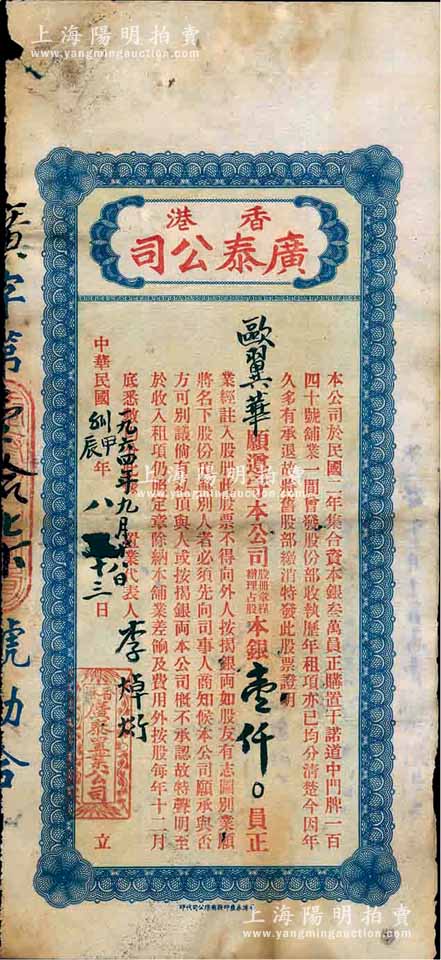 上海陽明拍賣
www.yangmingauction.com
香港
廣泰公司
本公司於民國二年集合資本銀叁萬員正購置干諾道中門牌一百
四十號舖業一間曾發股份部收執歷年租項亦已均分清楚今因年
久多有承退故將舊股部繳消特發此股票證明
歐翼華願遵守本公司股冊章程辦理占股本銀壹仟〇員正
業經註入股冊此股票不得向外人按揭銀両如股友有志圖別業願
將名下股份轉讓別人者必須先向司事人商知候本公司願承與否
方可別議倘有私項與人或按揭銀両本公司概不承認故特聲明至
於收入租項仍照定章除納本舖業差餉及費用外按股每年十二月
底悉數
置業代表人 李焯
一九六四年九月 日
中華民國 甲辰年八 十三日 立
廣字第壹拾 號 合
上海陽明拍賣
www.yangmingauction.com